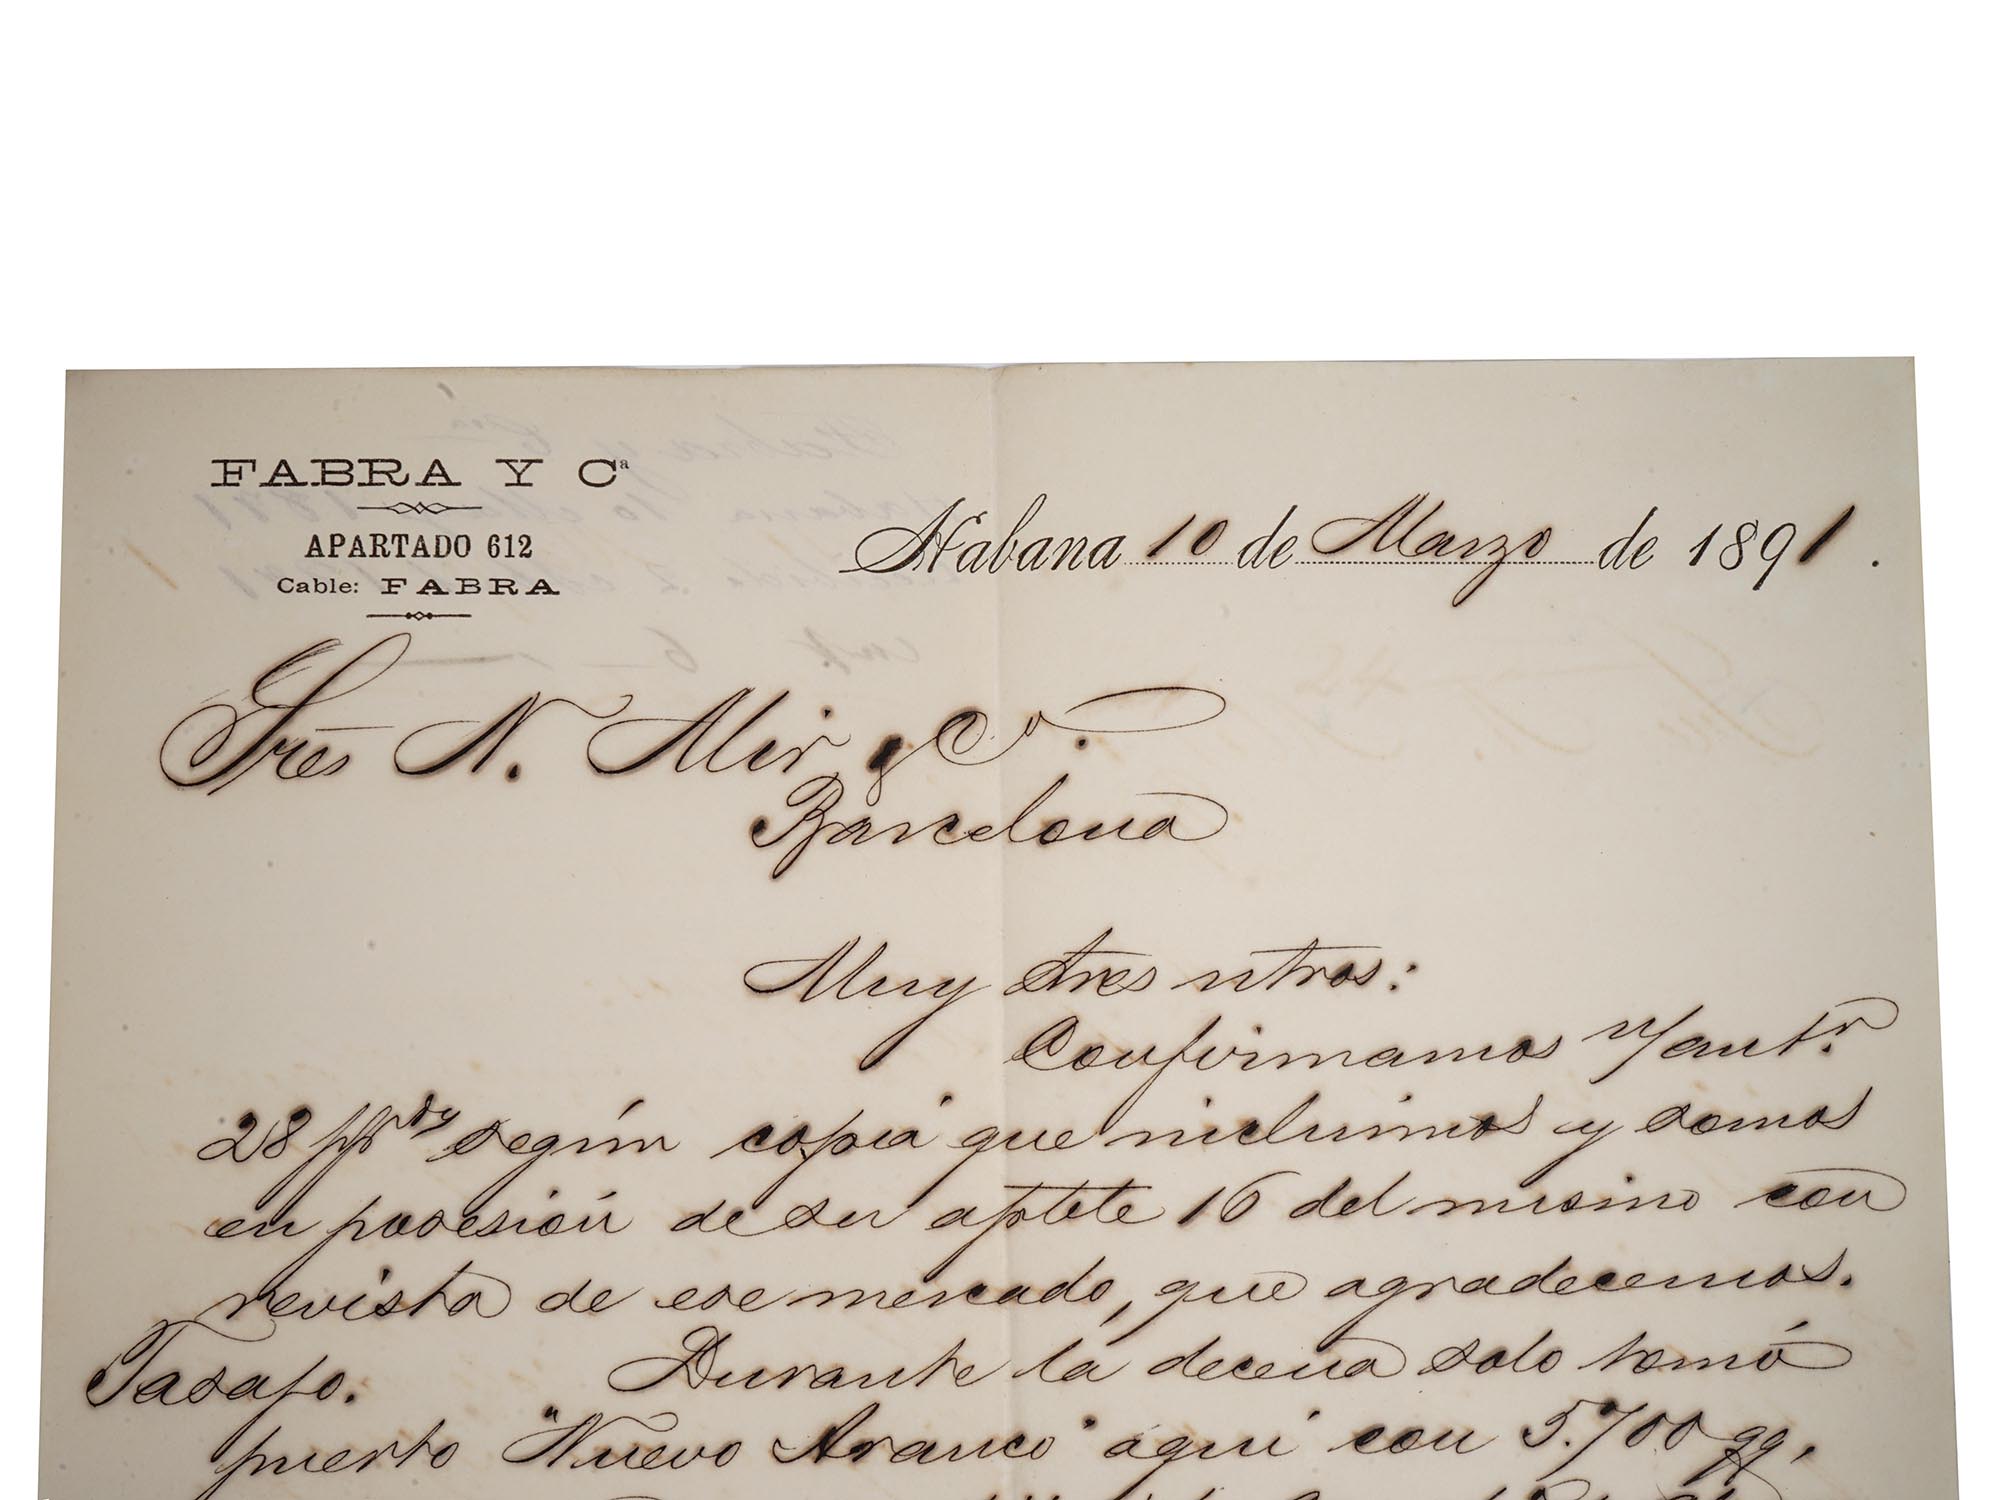 FABRA Y Cª
APARTADO 612
Cable: FABRA
Habana 10 de Marzo de 1891.
Sres N. Mir y Cª.
Barcelona
Muy Sres ntros:
Confirmamos n/ antr.
28 ppdo según copia que incluimos y somos
en posesión de su aptete 16 del mismo con
revista de ese mercado, que agradecemos.
Tasajo. Durante la decena solo tomó
puerto "Nuevo Arauco" aquí con 5.700 qq.